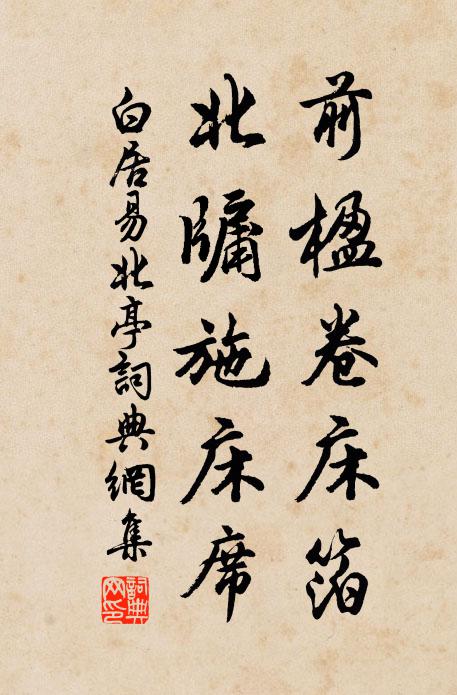 前楹卷床箔
北牖施床席
白居易北亭詞典網集
詞典网印